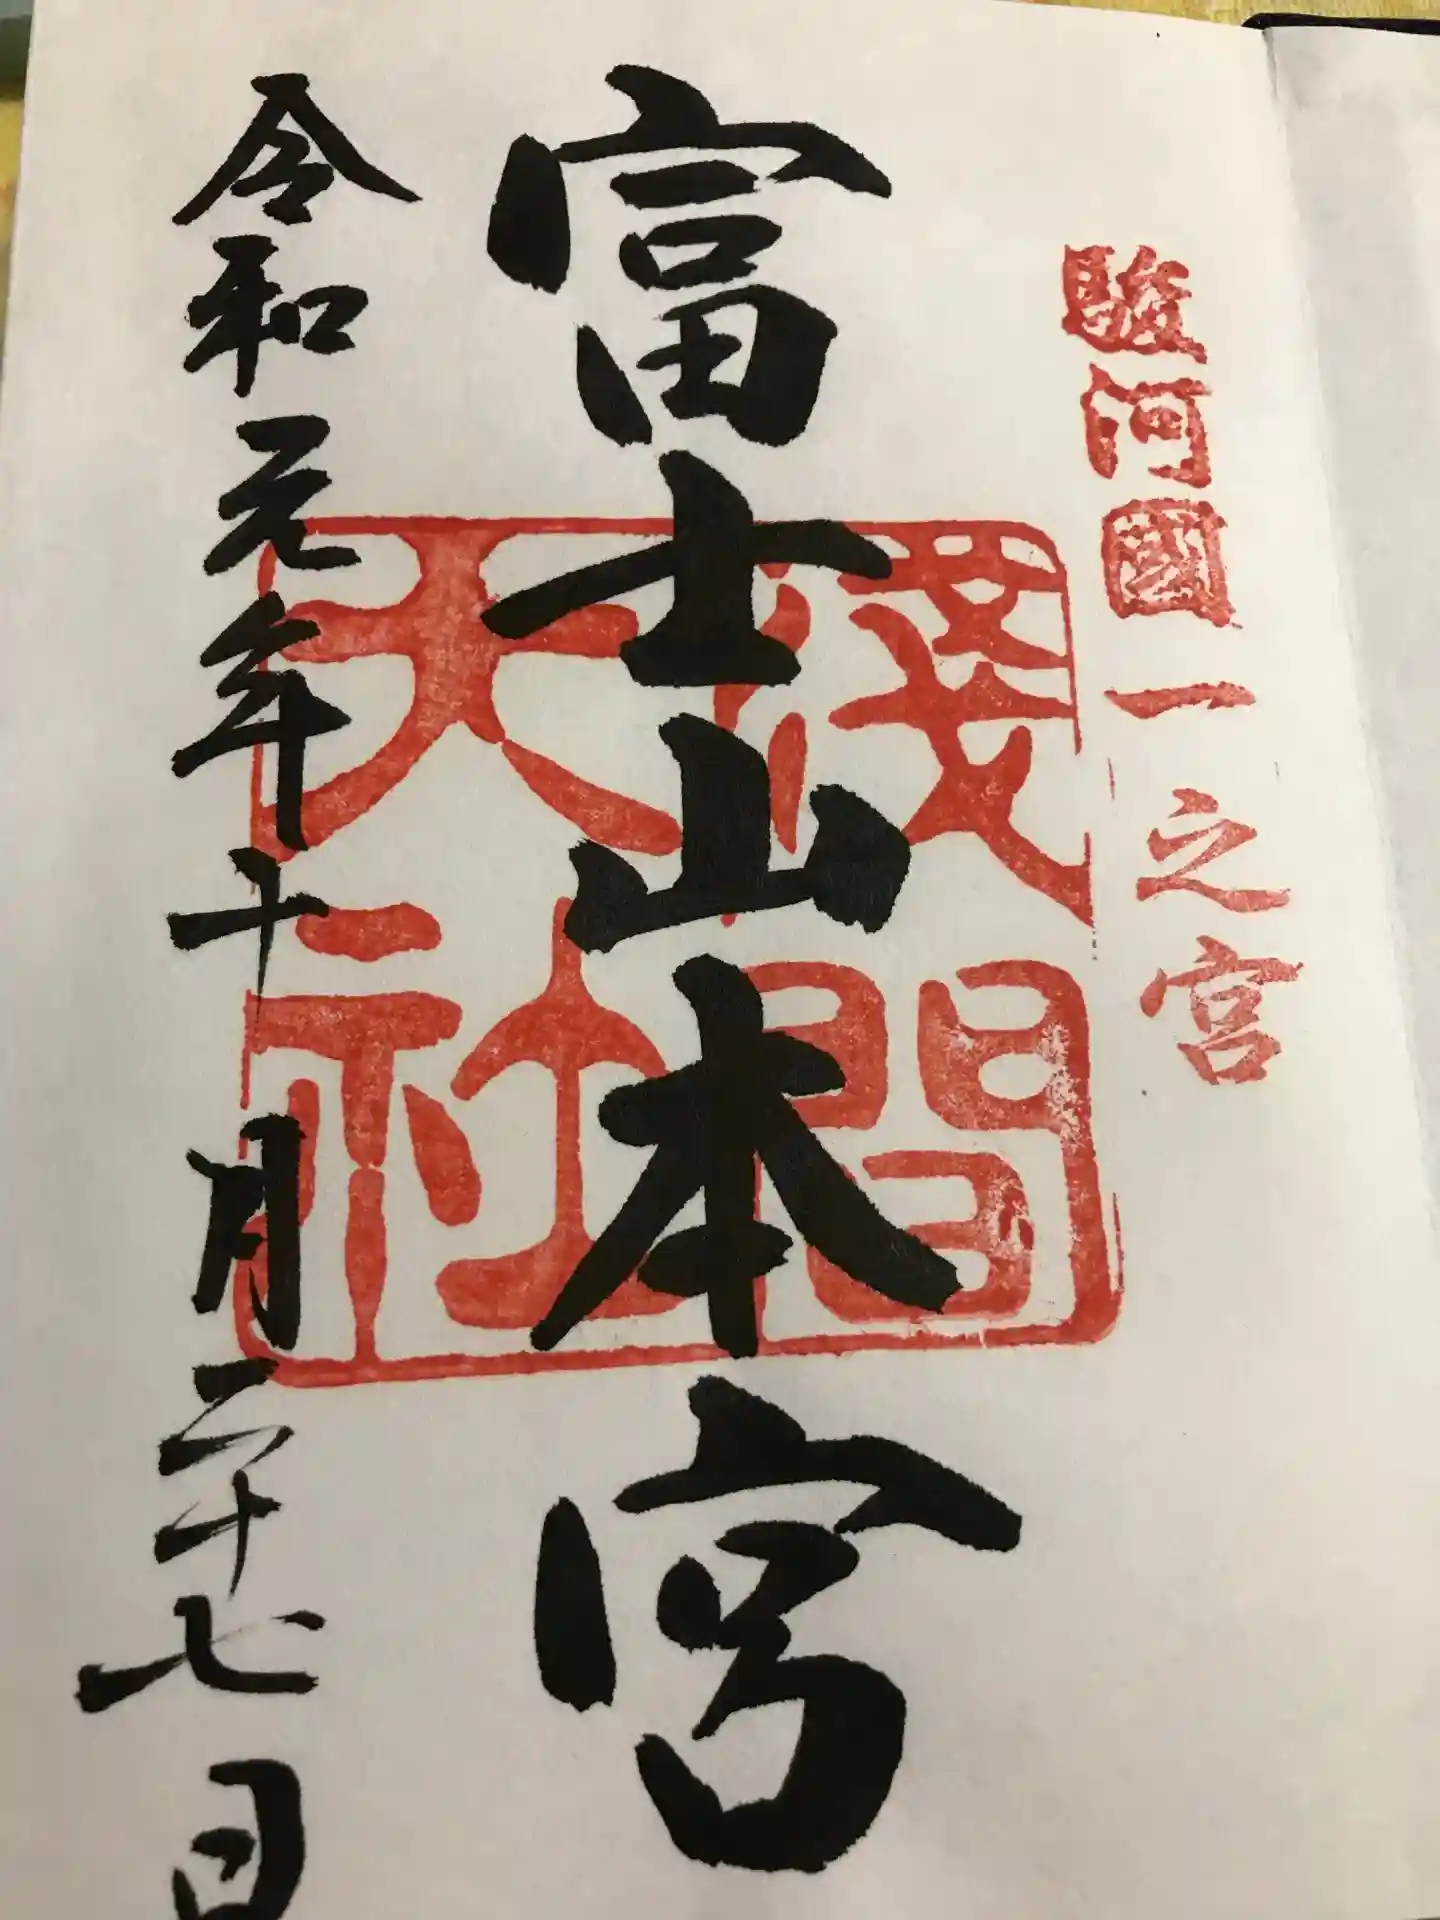 駿河國一之宮
富士山本宮
淺間
大社
令和元年十月二十七日